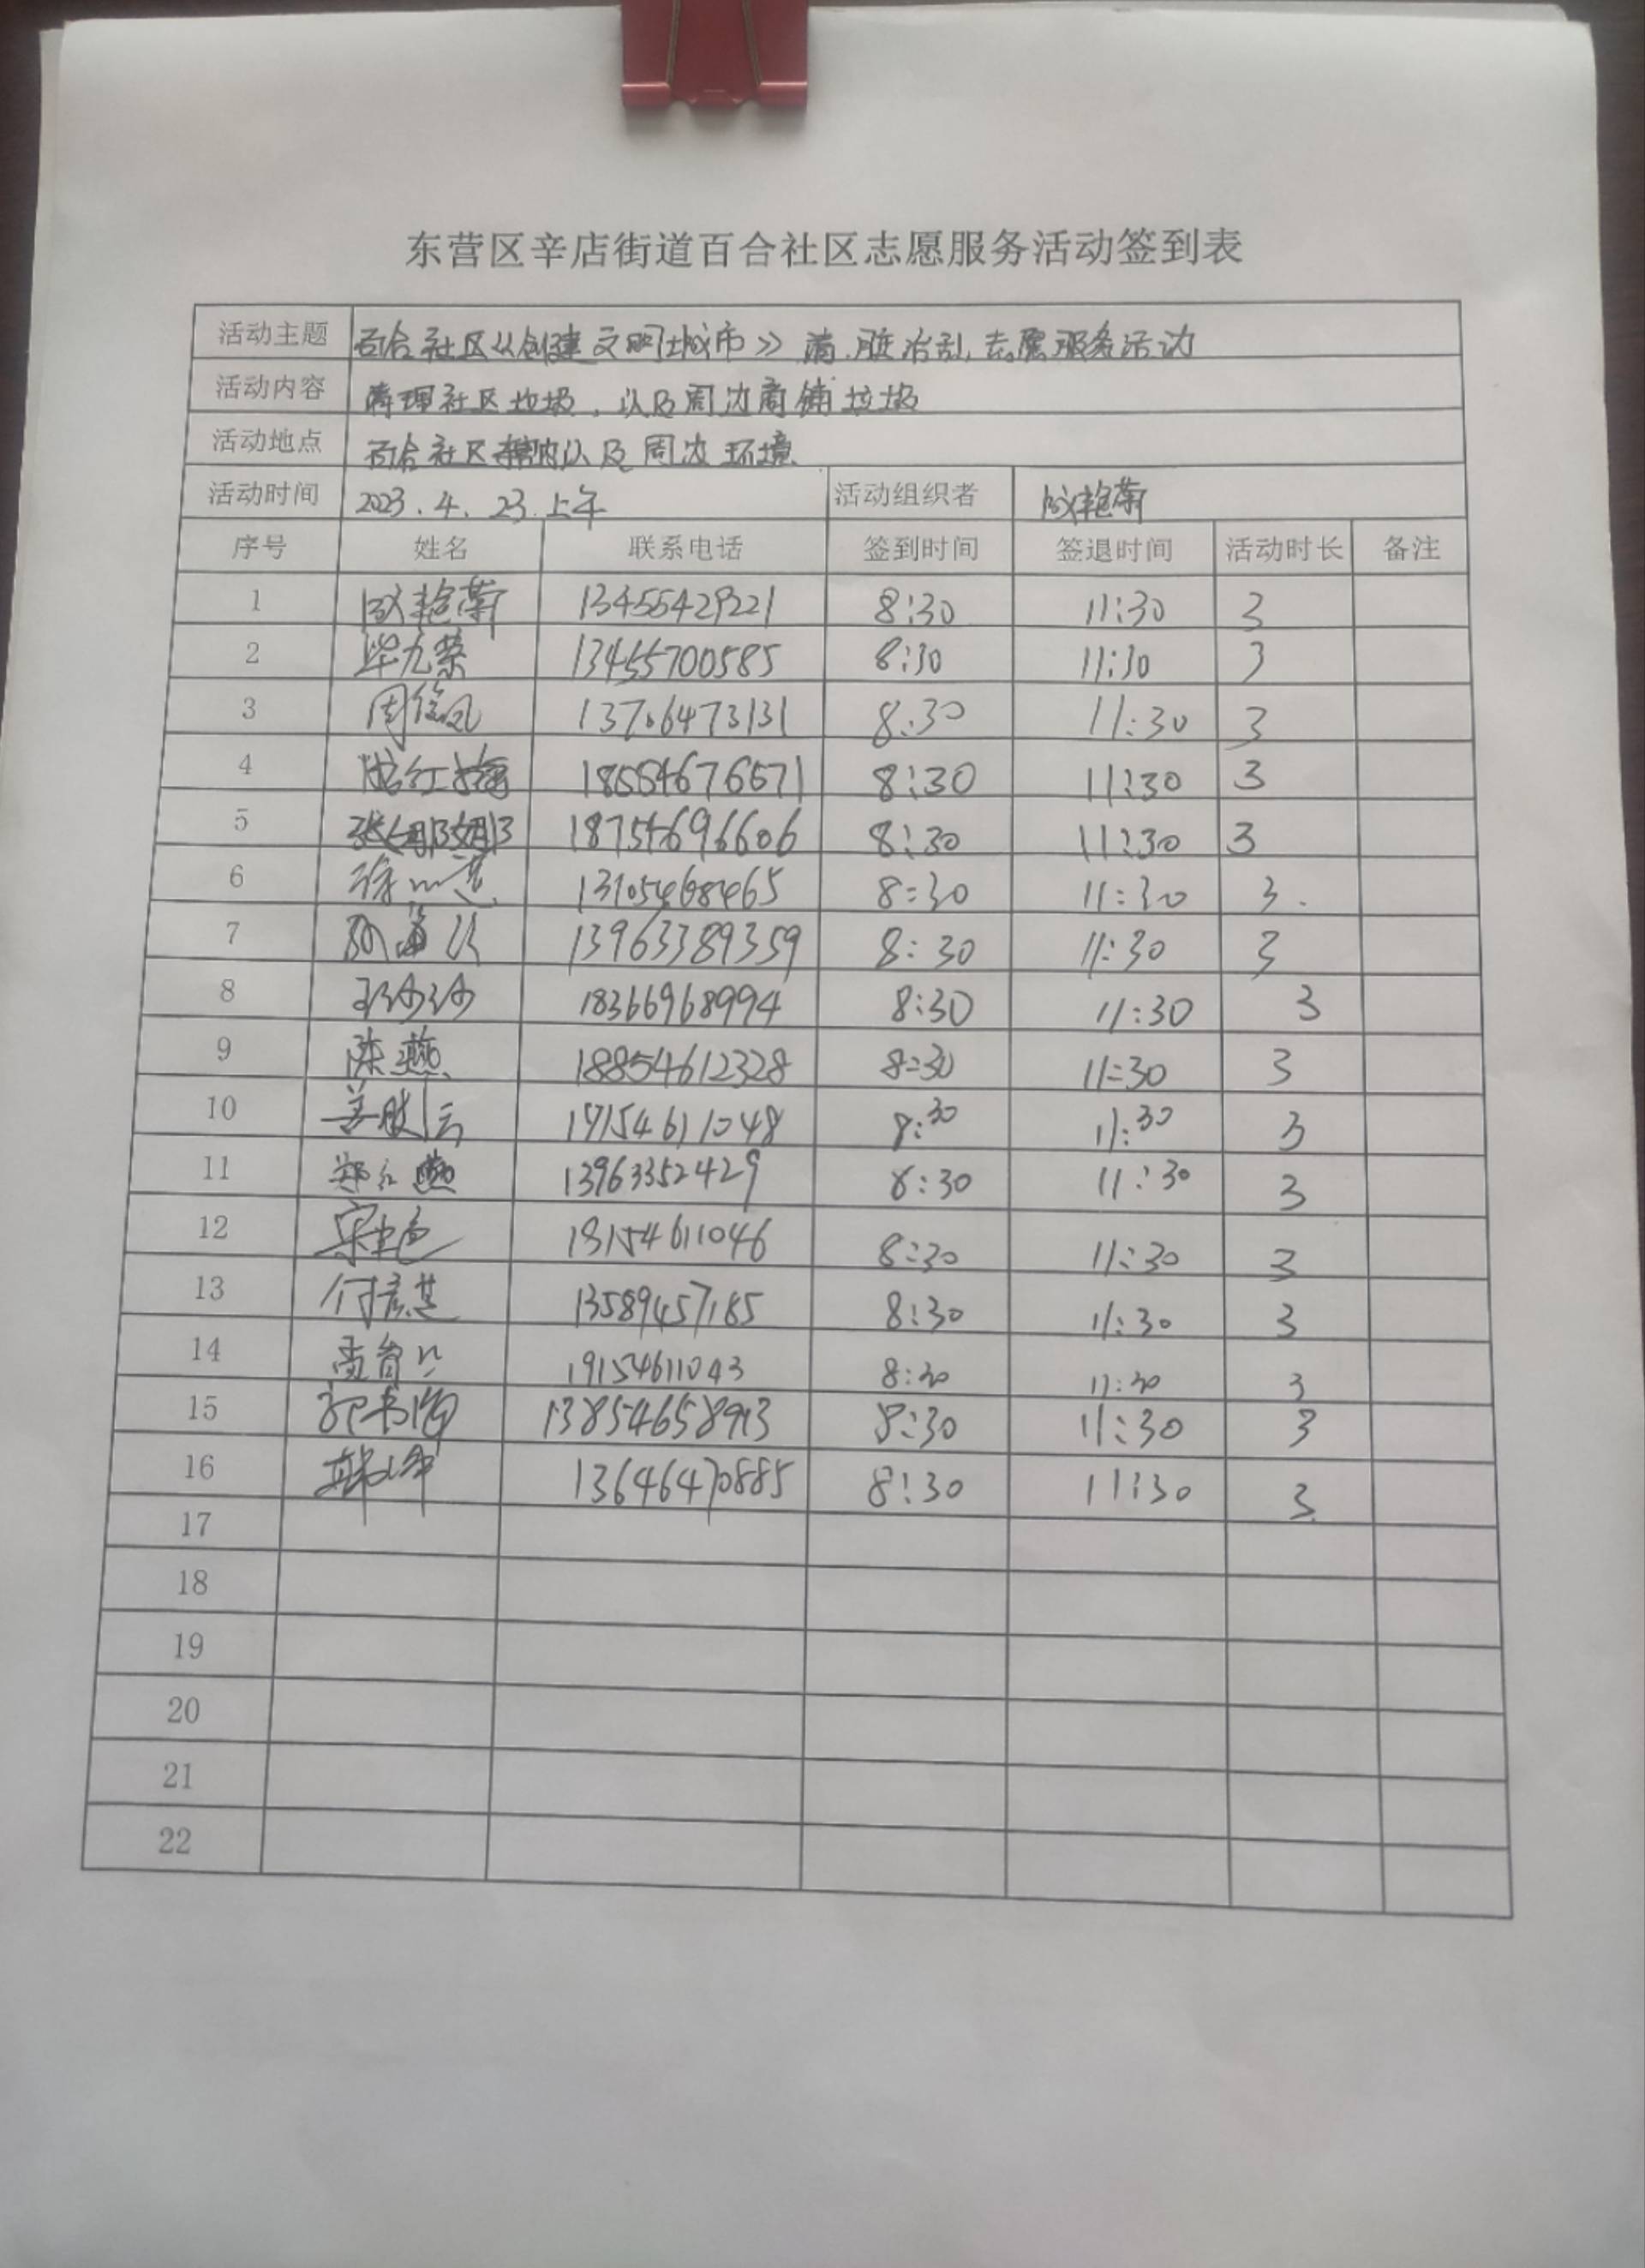 东营区辛店街道百合社区志愿服务活动签到表
活动主题 百合社区《创建文明城市》清脏治乱志愿服务活动
活动内容 清理社区垃圾，以及周边商铺垃圾
活动地点 百合社区辖内以及周边环境
活动时间 2023.4.23.上午 活动组织者
序号 姓名 联系电话 签到时间 签退时间 活动时长 备注
1 13455429221 8:30 11:30 3
2 13455700585 8:30 11:30 3
3 13706473131 8:30 11:30 3
4 18554676671 8:30 11:30 3
5 张娜娜 18754696606 8:30 11:30 3
6 13105468465 8:30 11:30 3.
7 13963389359 8:30 11:30 3
8 18366968994 8:30 11:30 3
9 陈燕 18854612328 8:30 11:30 3
10 19154611048 8:30 11:30 3
11 郑红燕 13963352429 8:30 11:30 3
12 19154611046 8:30 11:30 3
13 13589457185 8:30 11:30 3
14 19154611043 8:30 11:30 3
15 13854658913 8:30 11:30 3
16 13646470885 8:30 11:30 3
17
18
19
20
21
22